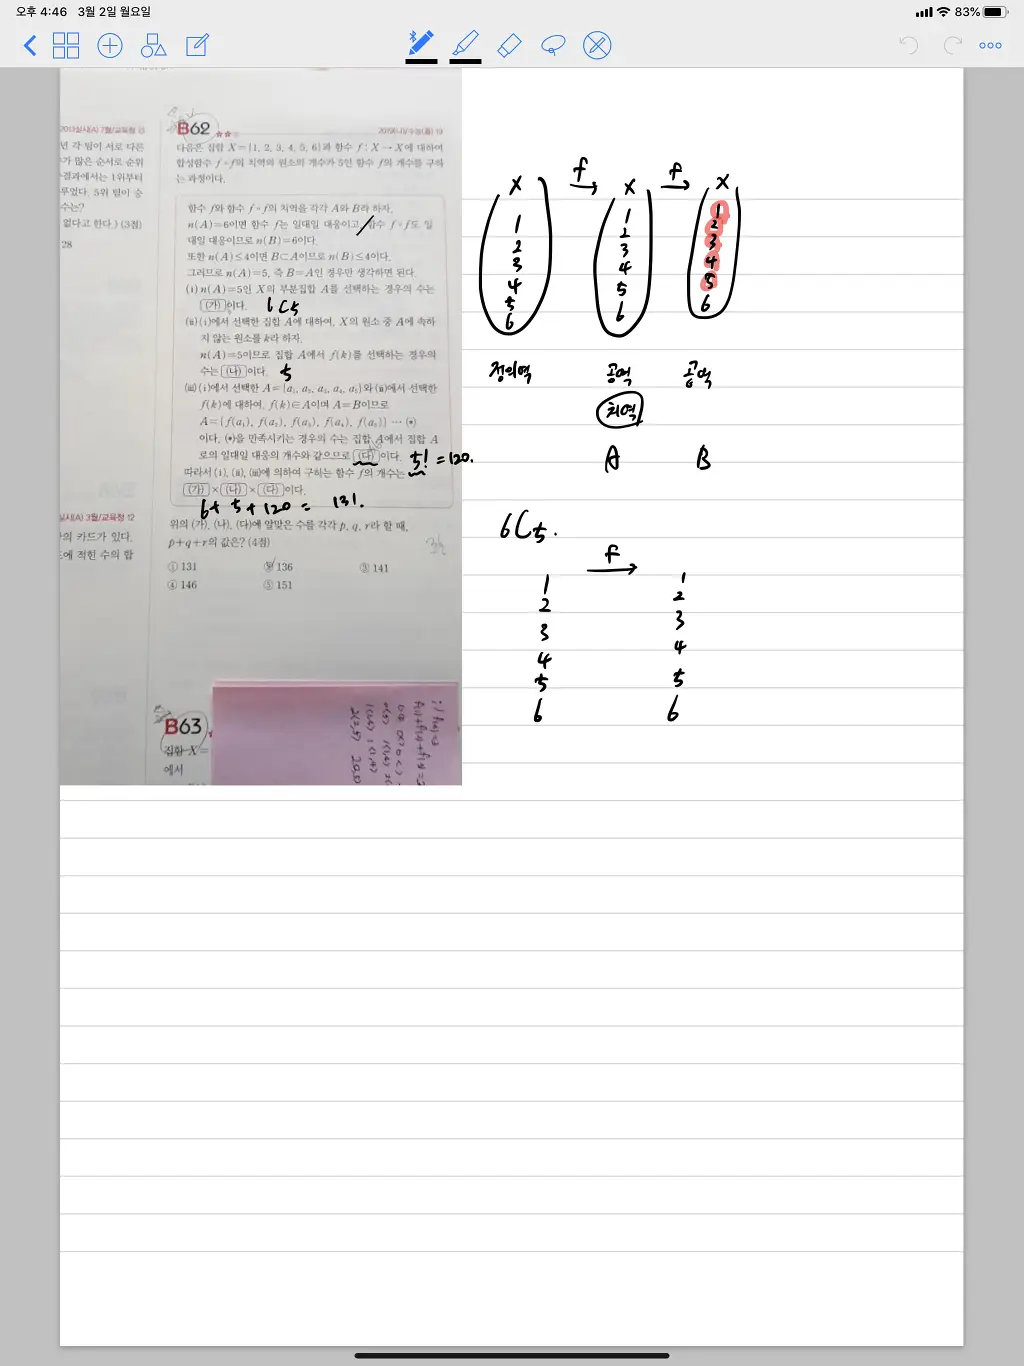 오후 4:46 3월 2일 월요일
83%
2013실시(A) 7월/교육청 13
년 각 팀이 서로 다른
가 많은 순서로 순위
결과에서는 1위부터
루었다. 5위 팀이 승
수는?
없다고 한다.) (3점)
28
실시(A) 3월/교육청 12
의 카드가 있다.
에 적힌 수의 합
B62
다음은 집합 X={1, 2, 3, 4, 5, 6}과 함수 f : X → X에 대하여
합성함수 f∘f의 치역의 원소의 개수가 5인 함수 f의 개수를 구하
는 과정이다.
함수 f와 함수 f∘f의 치역을 각각 A와 B라 하자.
n(A)=6이면 함수 f는 일대일 대응이고, 함수 f∘f도 일
대일 대응이므로 n(B)=6이다.
또한 n(A)≤4이면 B⊂A이므로 n(B)≤4이다.
그러므로 n(A)=5, 즉 B=A인 경우만 생각하면 된다.
(ⅰ) n(A)=5인 X의 부분집합 A를 선택하는 경우의 수는
(가)이다. 6C5
(ⅱ) (ⅰ)에서 선택한 집합 A에 대하여, X의 원소 중 A에 속하
지 않는 원소를 k라 하자.
n(A)=5이므로 집합 A에서 f(k)를 선택하는 경우의
수는 (나)이다. 5
(ⅲ) (ⅰ)에서 선택한 A={a₁, a₂, a₃, a₄, a₅}와 (ⅱ)에서 선택한
f(k)에 대하여, f(k)∈A이며 A=B이므로
A={f(a₁), f(a₂), f(a₃), f(a₄), f(a₅)} ⋯ (*)
이다. (*)을 만족시키는 경우의 수는 집합 A에서 집합 A
로의 일대일 대응의 개수와 같으므로 (다)이다. 5! = 120.
따라서 (ⅰ), (ⅱ), (ⅲ)에 의하여 구하는 함수 f의 개수는
(가)×(나)×(다)이다.
6 + 5 + 120 = 131.
위의 (가), (나), (다)에 알맞은 수를 각각 p, q, r라 할 때,
p+q+r의 값은? (4점)
① 131 ② 136 ③ 141
④ 146 ⑤ 151
B63
집합 X=
에서
f f
X X X
1 1 1
2 2 2
3 3 3
4 4 4
5 5 5
6 6 6
정의역 공역 공역
치역
A B
6C5.
f
1 1
2 2
3 3
4 4
5 5
6 6